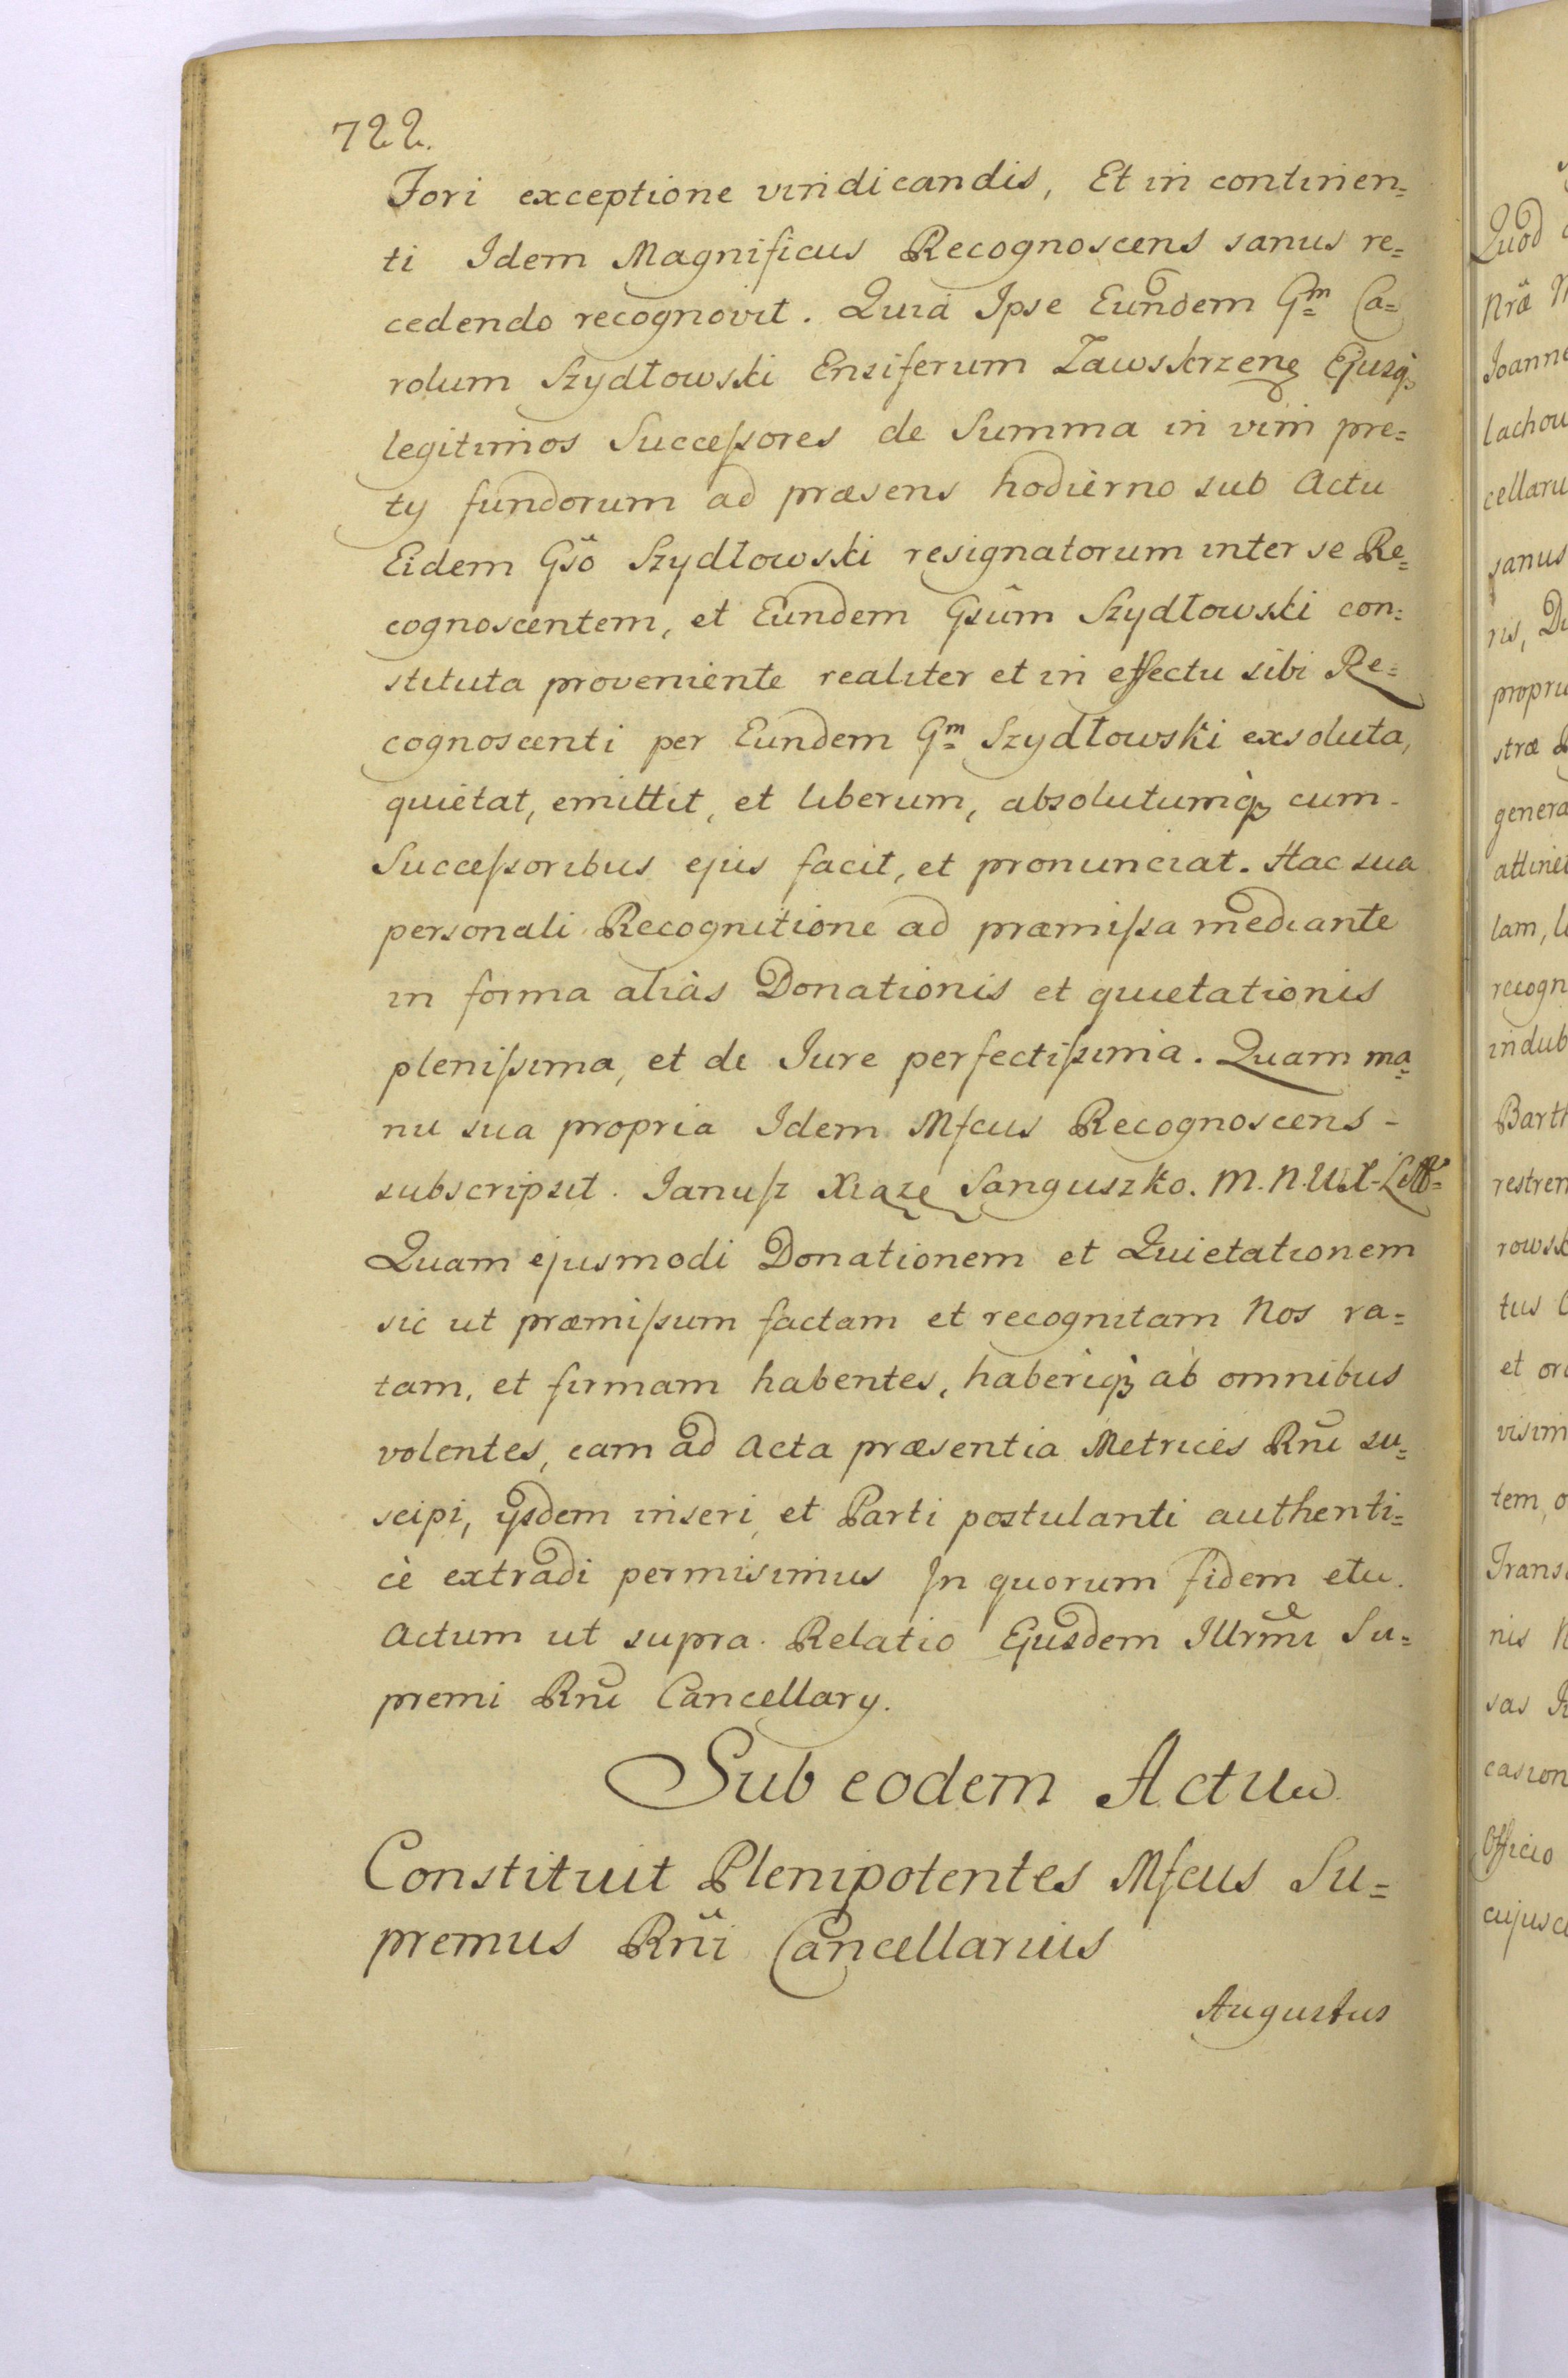 722.
Fori exceptione vindicandis, Et in continen=
ti Idem Magnificus Recognoscens sanus re=
cedendo recognovit. Quia Ipse Eundem Gm Ca=
rolum Szydłowski Ensiferum Zawskrzenς Ejusq;
legitimos Succeſsores de Summa in vim pre=
ty fundorum ad præsens hodierno sub Actu
Eidem Gsõ Szydłowski resignatorum inter se Re=
cognoscentem, et Eundem Gsũm Szydłowski con=
stituta proveniente realiter et in effectu sibi Re=
cognoscenti per Eundem Gm Szydłowski exsoluta,
quietat, emittit, et liberum, absolutumq; cum
Succeſsoribus ejus facit, et pronunciat. Hac sua
personali Recognitione ad præmiſsa mediante
in forma aliàs Donationis et quietationis
pleniſsima, et de Jure perfectiſsima. Quam ma=
nu sua propria Idem Mfcus Recognoscens -
subscripsit. Januſz Xiąze Sanguszko. M. N. W. X. Litt=
Quam ejusmodi Donationem et Quietationem
sic ut præmiſsum factam et recognitam Nos ra=
tam, et firmam habentes, haberiq; ab omnibus
volentes, eam ad Acta præsentia Metrices Rñi su=
scipi, ijsdem inseri, et Parti postulanti authenti=
cè extradi permisimus In quorum fidem etc.
Actum ut supra. Relatio Ejusdem Illrm̃i Su=
premi Rñi Cancellary.
Sub eodem Actu
Constituit Plenipotentes Mfcus Su=
premus Rñi Cancellarius
Augustus
Quod
Nrã
Joanne
lachow
cellaru
sanus
ris,
propriu
stræ
genera
attinet
lam,
recogn
indub
Barth
restrem
rowsk
tus
et ord
visim
tem
Trans
nis
sas
casion
Officio
cujusc